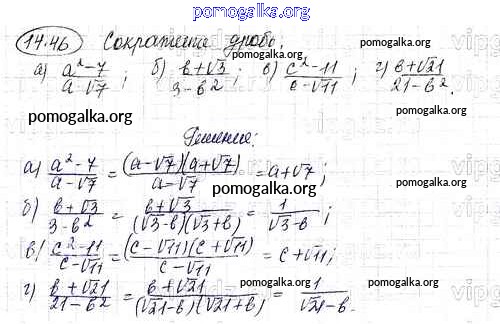 pomogalka.org
14.46 Сократите дробь:
pomogalka.org
а) (a²-7)/(a-√7); б) (b+√3)/(3-b²); в) (c²-11)/(c-√11); г) (b+√21)/(21-b²).
pomogalka.org pomogalka.org
pomogalka.org
Решение:
а) (a²-7)/(a-√7) = ((a-√7)(a+√7))/(a-√7) = a+√7;
pomogalka.org
б) (b+√3)/(3-b²) = (b+√3)/((√3-b)(√3+b)) = 1/(√3-b);
в) (c²-11)/(c-√11) = ((c-√11)(c+√11))/(c-√11) = c+√11;
pomogalka.org
г) (b+√21)/(21-b²) = (b+√21)/((√21-b)(√21+b)) = 1/(√21-b).
pomogalka.org pomogalka.org